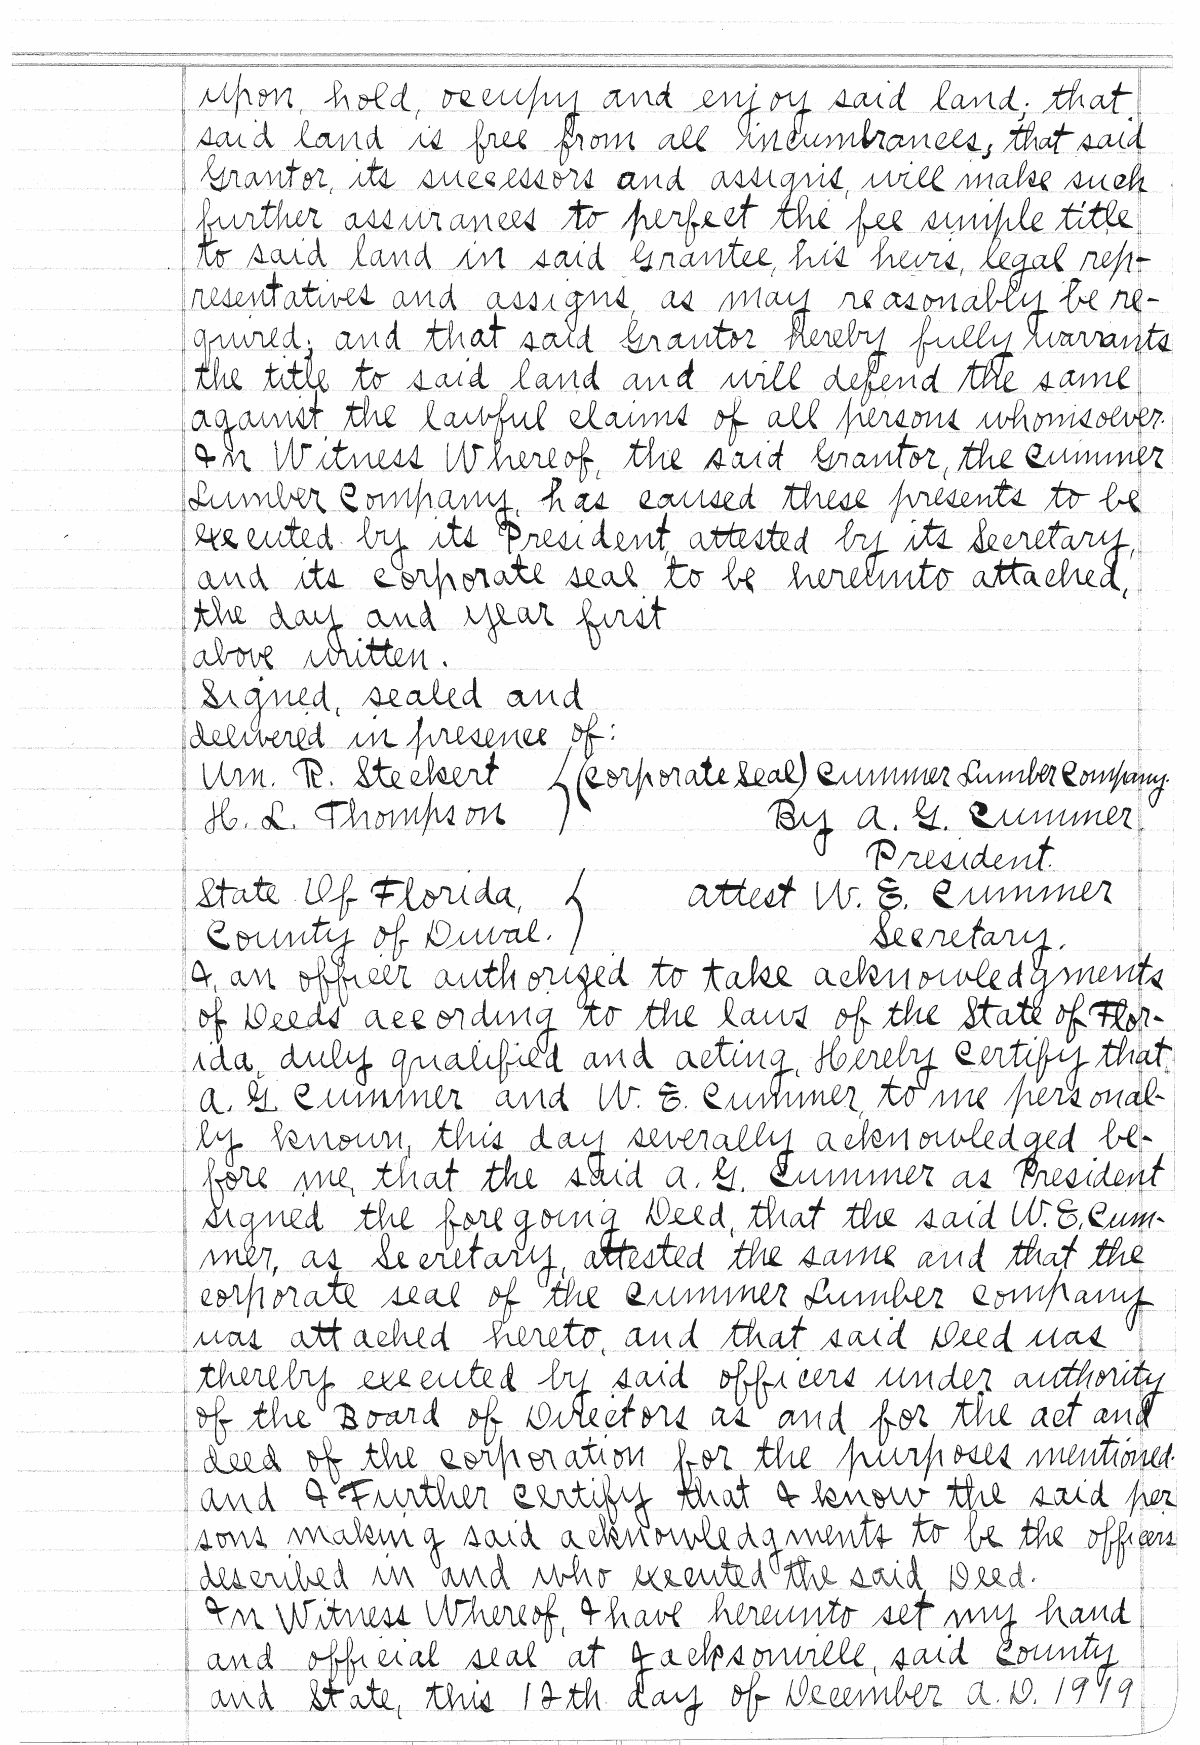 upon, hold, occupy and enjoy said land; that
said land is free from all incumbrances; that said
Grantor, its successors and assigns, will make such
further assurances to perfect the fee simple title
to said land in said Grantee, his heirs, legal rep-
resentatives and assigns, as may reasonably be re-
quired; and that said Grantor hereby fully warrants
the title to said land and will defend the same
against the lawful claims of all persons whomsoever.
In Witness Whereof, the said Grantor, the Cummer
Lumber Company, has caused these presents to be
executed by its President, attested by its Secretary,
and its corporate seal to be hereunto attached,
the day and year first
above written.
Signed, sealed and
delivered in presence of:
Wm. R. Steckert } (Corporate Seal) Cummer Lumber Company.
H. L. Thompson } By A. G. Cummer
President.
State Of Florida, } Attest W. E. Cummer
County of Duval. } Secretary.
I, an officer authorized to take acknowledgments
of Deeds according to the laws of the State of Flor-
ida, duly qualified and acting, Hereby Certify that
A. G. Cummer and W. E. Cummer, to me personal-
ly known, this day severally acknowledged be-
fore me, that the said A. G. Cummer as President
signed the foregoing Deed, that the said W. E. Cum-
mer, as Secretary, attested the same and that the
corporate seal of the Cummer Lumber Company
was attached hereto, and that said Deed was
thereby executed by said officers under authority
of the Board of Directors as and for the act and
deed of the corporation for the purposes mentioned.
and I Further Certify that I know the said per
sons making said acknowledgments to be the officers
described in and who executed the said Deed.
In Witness Whereof, I have hereunto set my hand
and official seal at Jacksonville, said County
and State, this 12th day of December A.D. 1919